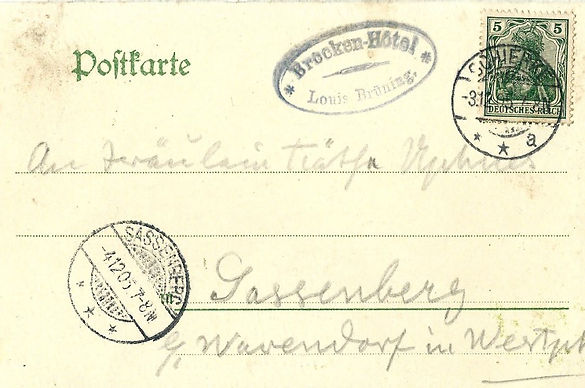 Postkarte
* Brocken-Hôtel *
Louis Brüning.
5 5
DEUTSCHES REICH
SCHIERKE
-3.12.
* * a
An Fräulein Käthe
SASSENBERG
-4.12.05.7-8.V.
* * *
Sassenberg
b/ Warendorf in Westph